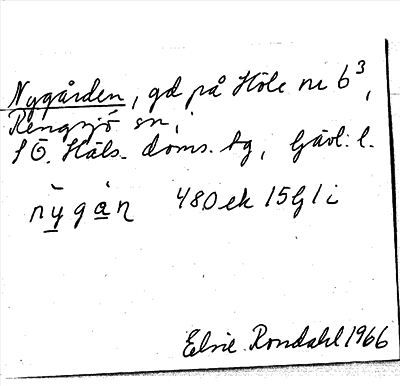 Nygården, gd på Höle nr 6³,
Rengsjö sn,
SÖ. Häls. doms. tg, Gävl: l.
nỳgàn 480 ek 15G1i
Elsie Rondahl 1966